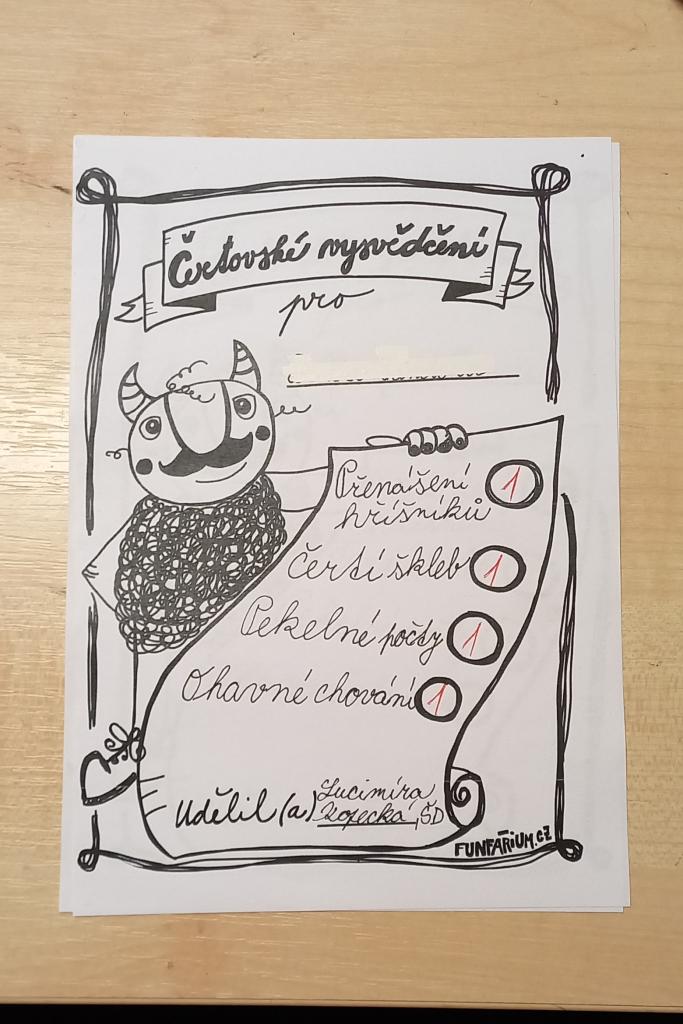 Čertovské vysvědčení
pro
Přenášení 1
hříšníků
Čertí škleb 1
Pekelné počty 1
Ohavné chování 1
Udělil (a) Lucimíra
Rohecká, ŠD
FUNFÁRIUM.CZ